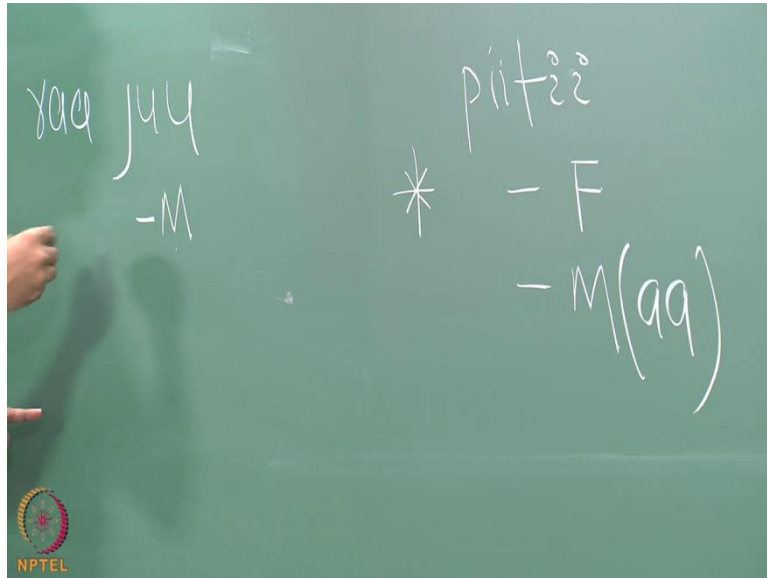 raajuu piitii
-M * - F
- M(aa)
NPTEL